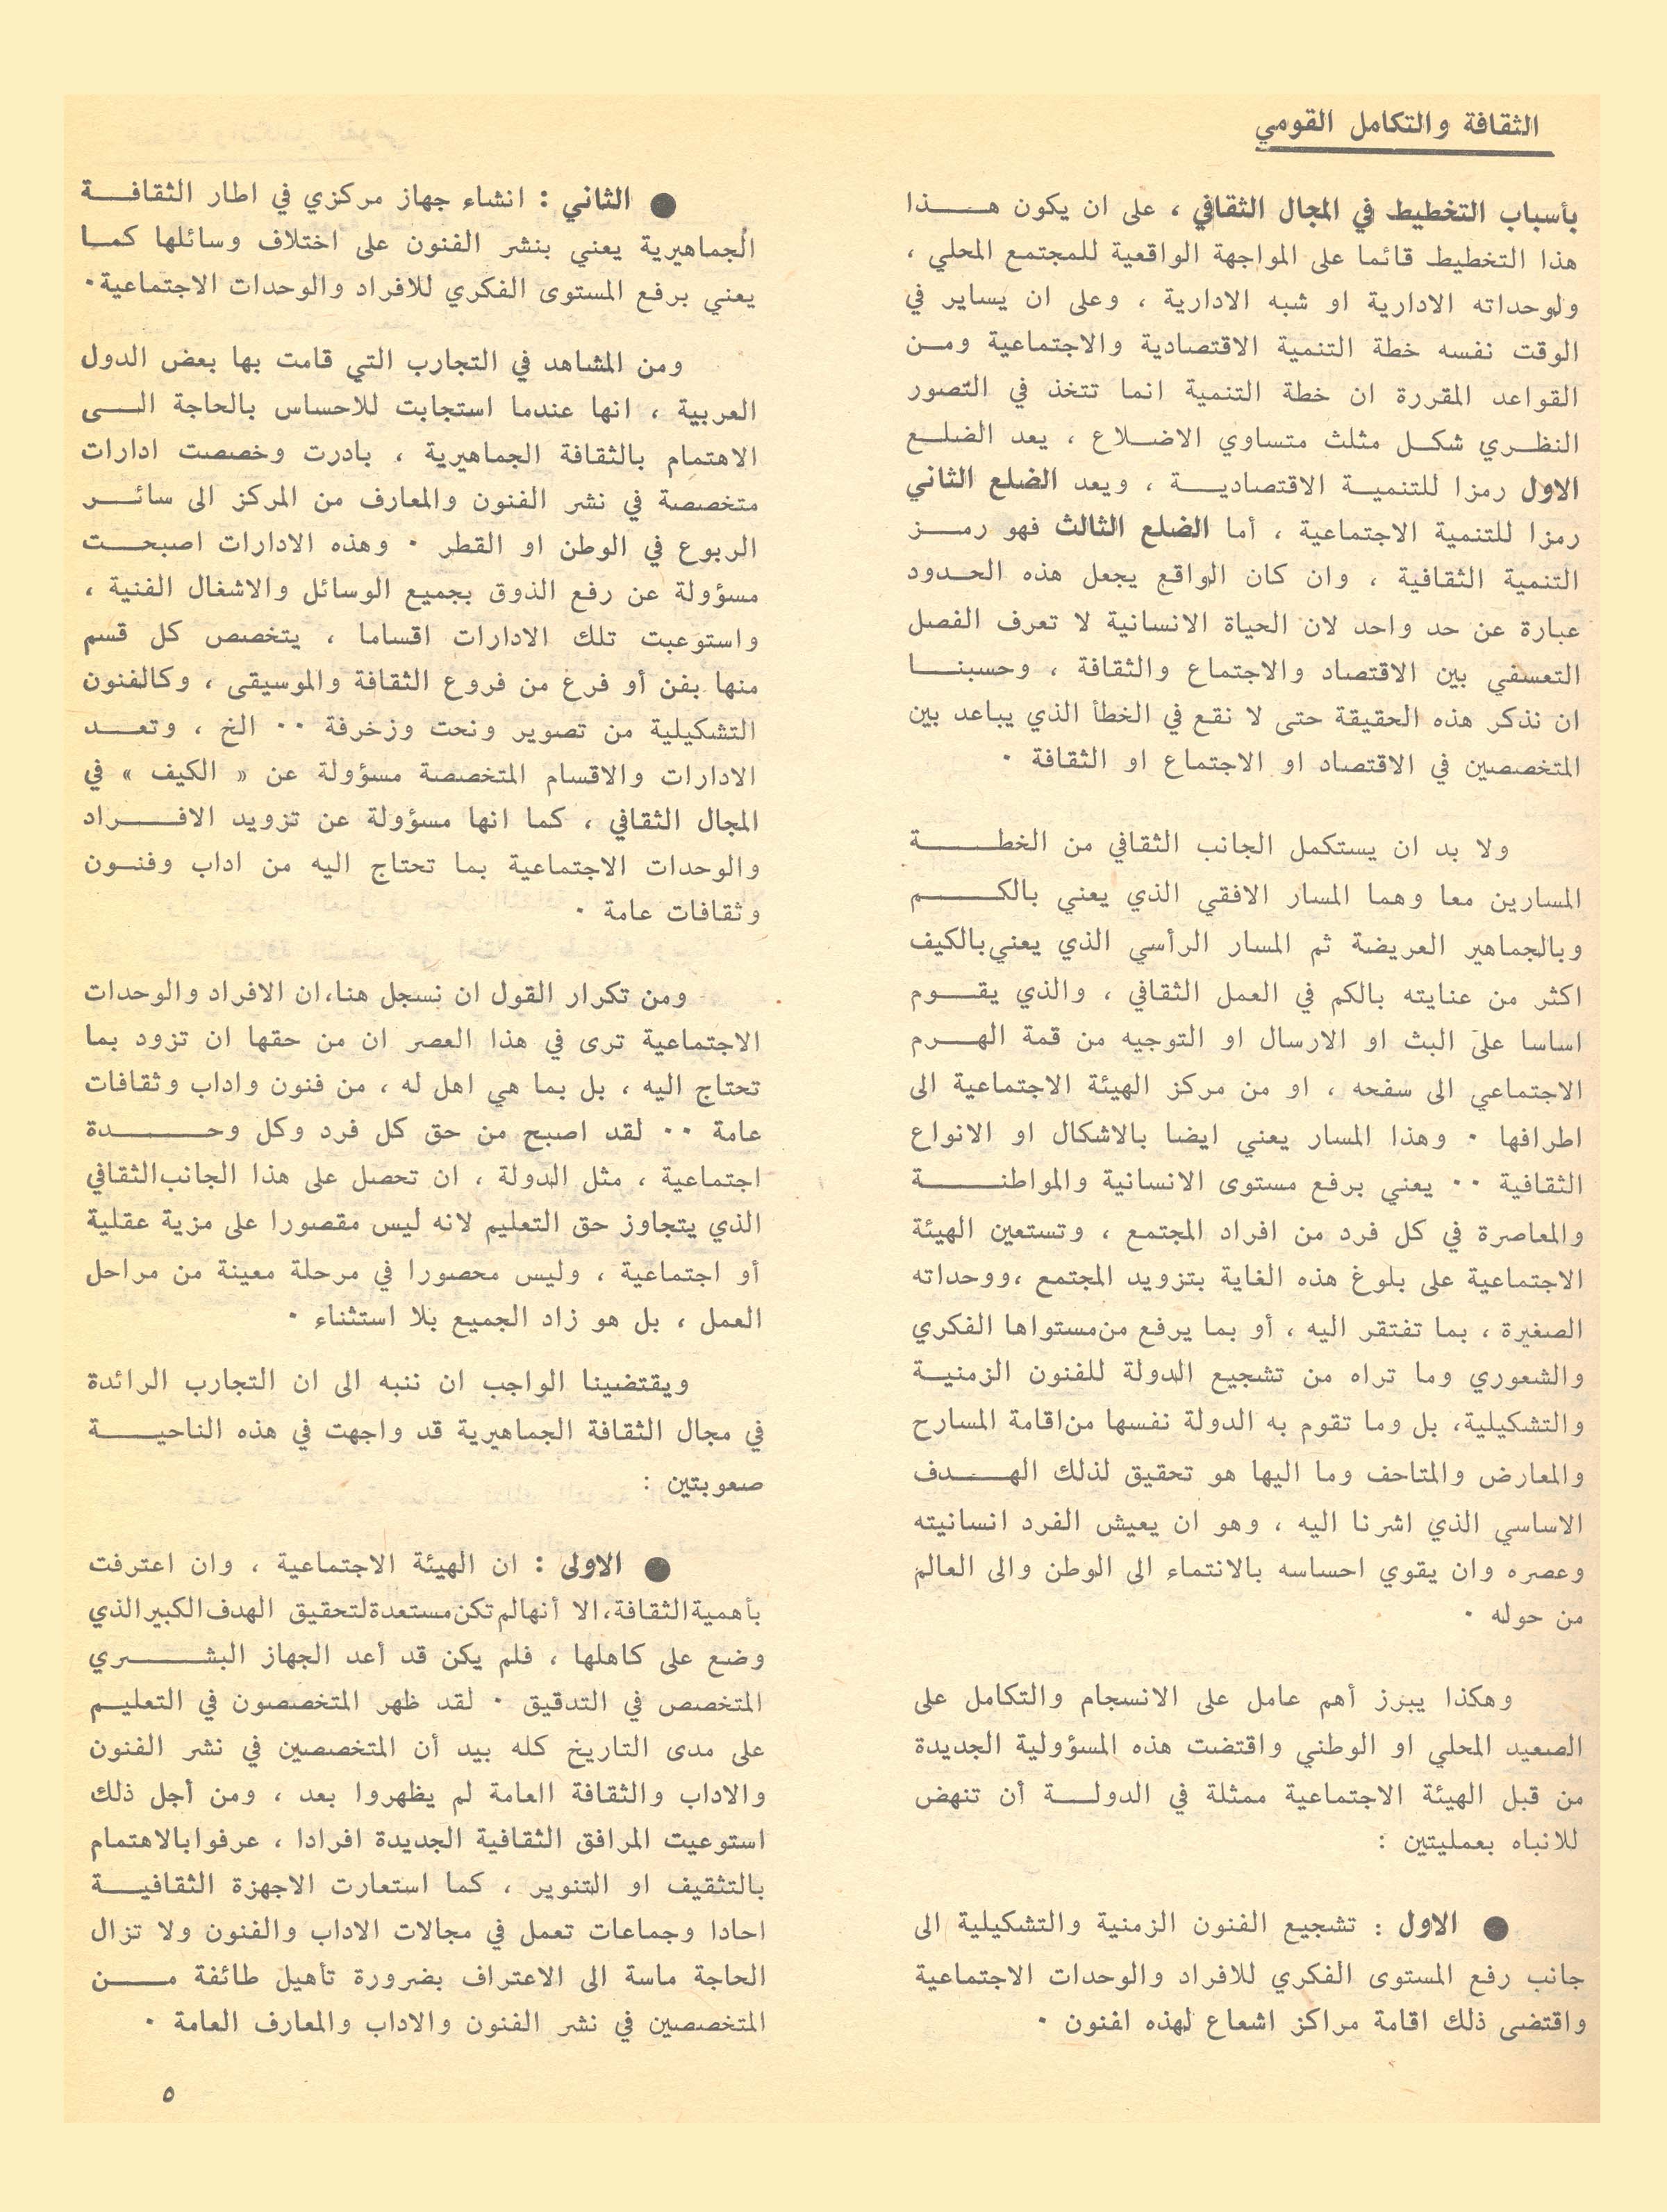 الثقافة والتكامل القومي
بأسباب التخطيط في المجال الثقافي ، على ان يكون هذا
هذا التخطيط قائما على المواجهة الواقعية للمجتمع المحلي ،
ولوحداته الادارية او شبه الادارية ، وعلى ان يساير في
الوقت نفسه خطة التنمية الاقتصادية والاجتماعية ومن
القواعد المقررة ان خطة التنمية انما تتخذ في التصور
النظري شكل مثلث متساوي الاضلاع ، يعد الضلع
الاول رمزا للتنمية الاقتصادية ، ويعد الضلع الثاني
رمزا للتنمية الاجتماعية ، أما الضلع الثالث فهو رمز
التنمية الثقافية ، وان كان الواقع يجعل هذه الحدود
عبارة عن حد واحد لان الحياة الانسانية لا تعرف الفصل
التعسفي بين الاقتصاد والاجتماع والثقافة ، وحسبنا
ان نذكر هذه الحقيقة حتى لا نقع في الخطأ الذي يباعد بين
المتخصصين في الاقتصاد او الاجتماع او الثقافة ·
ولا بد ان يستكمل الجانب الثقافي من الخطة
المسارين معا وهما المسار الافقي الذي يعني بالكم
وبالجماهير العريضة ثم المسار الرأسي الذي يعني بالكيف
اكثر من عنايته بالكم في العمل الثقافي ، والذي يقوم
اساسا على البث او الارسال او التوجيه من قمة الهرم
الاجتماعي الى سفحه ، او من مركز الهيئة الاجتماعية الى
اطرافها · وهذا المسار يعني ايضا بالاشكال او الانواع
الثقافية ·· يعني برفع مستوى الانسانية والمواطنة
والمعاصرة في كل فرد من افراد المجتمع ، وتستعين الهيئة
الاجتماعية على بلوغ هذه الغاية بتزويد المجتمع ، ووحداته
الصغيرة ، بما تفتقر اليه ، أو بما يرفع من مستواها الفكري
والشعوري وما تراه من تشجيع الدولة للفنون الزمنية
والتشكيلية، بل وما تقوم به الدولة نفسها من اقامة المسارح
والمعارض والمتاحف وما اليها هو تحقيق لذلك الهدف
الاساسي الذي اشرنا اليه ، وهو ان يعيش الفرد انسانيته
وعصره وان يقوي احساسه بالانتماء الى الوطن والى العالم
من حوله ·
وهكذا يبرز أهم عامل على الانسجام والتكامل على
الصعيد المحلي او الوطني واقتضت هذه المسؤولية الجديدة
من قبل الهيئة الاجتماعية ممثلة في الدولة أن تنهض
للانباه بعمليتين :
● الاول : تشجيع الفنون الزمنية والتشكيلية الى
جانب رفع المستوى الفكري للافراد والوحدات الاجتماعية
واقتضى ذلك اقامة مراكز اشعاع لهذه افنون ·
● الثاني : انشاء جهاز مركزي في اطار الثقافة
الجماهيرية يعني بنشر الفنون على اختلاف وسائلها كما
يعني برفع المستوى الفكري للافراد والوحدات الاجتماعية·
ومن المشاهد في التجارب التي قامت بها بعض الدول
العربية ، انها عندما استجابت للاحساس بالحاجة الى
الاهتمام بالثقافة الجماهيرية ، بادرت وخصصت ادارات
متخصصة في نشر الفنون والمعارف من المركز الى سائر
الربوع في الوطن او القطر · وهذه الادارات اصبحت
مسؤولة عن رفع الذوق بجميع الوسائل والاشغال الفنية ،
واستوعبت تلك الادارات اقساما ، يتخصص كل قسم
منها بفن أو فرغ من فروع الثقافة والموسيقى ، وكالفنون
التشكيلية من تصوير ونحت وزخرفة ·· الخ ، وتعد
الادارات والاقسام المتخصصة مسؤولة عن « الكيف » في
المجال الثقافي ، كما انها مسؤولة عن تزويد الافراد
والوحدات الاجتماعية بما تحتاج اليه من اداب وفنون
وثقافات عامة ·
ومن تكرار القول ان نسجل هنا، ان الافراد والوحدات
الاجتماعية ترى في هذا العصر ان من حقها ان تزود بما
تحتاج اليه ، بل بما هي اهل له ، من فنون واداب وثقافات
عامة ·· لقد اصبح من حق كل فرد وكل وحدة
اجتماعية ، مثل الدولة ، ان تحصل على هذا الجانب الثقافي
الذي يتجاوز حق التعليم لانه ليس مقصورا على مزية عقلية
أو اجتماعية ، وليس محصورا في مرحلة معينة من مراحل
العمل ، بل هو زاد الجميع بلا استثناء ·
ويقتضينا الواجب ان ننبه الى ان التجارب الرائدة
في مجال الثقافة الجماهيرية قد واجهت في هذه الناحية
صعوبتين :
● الاولى : ان الهيئة الاجتماعية ، وان اعترفت
بأهمية الثقافة، الا أنها لم تكن مستعدة لتحقيق الهدف الكبير الذي
وضع على كاهلها ، فلم يكن قد أعد الجهاز البشري
المتخصص في التدقيق · لقد ظهر المتخصصون في التعليم
على مدى التاريخ كله بيد أن المتخصصين في نشر الفنون
والاداب والثقافة العامة لم يظهروا بعد ، ومن أجل ذلك
استوعبت المرافق الثقافية الجديدة افرادا ، عرفوا بالاهتمام
بالتثقيف او التنوير ، كما استعارت الاجهزة الثقافية
احادا وجماعات تعمل في مجالات الاداب والفنون ولا تزال
الحاجة ماسة الى الاعتراف بضرورة تأهيل طائفة من
المتخصصين في نشر الفنون والاداب والمعارف العامة ·
٥